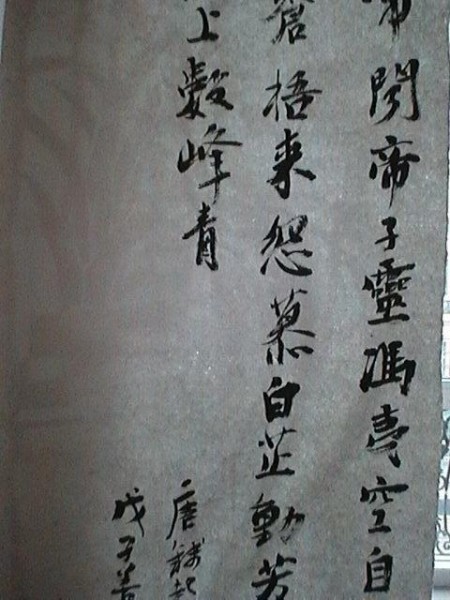 聞帝子靈馮夷空自
蒼梧来怨慕白芷動芳
上數峰青
唐錢起
戊子